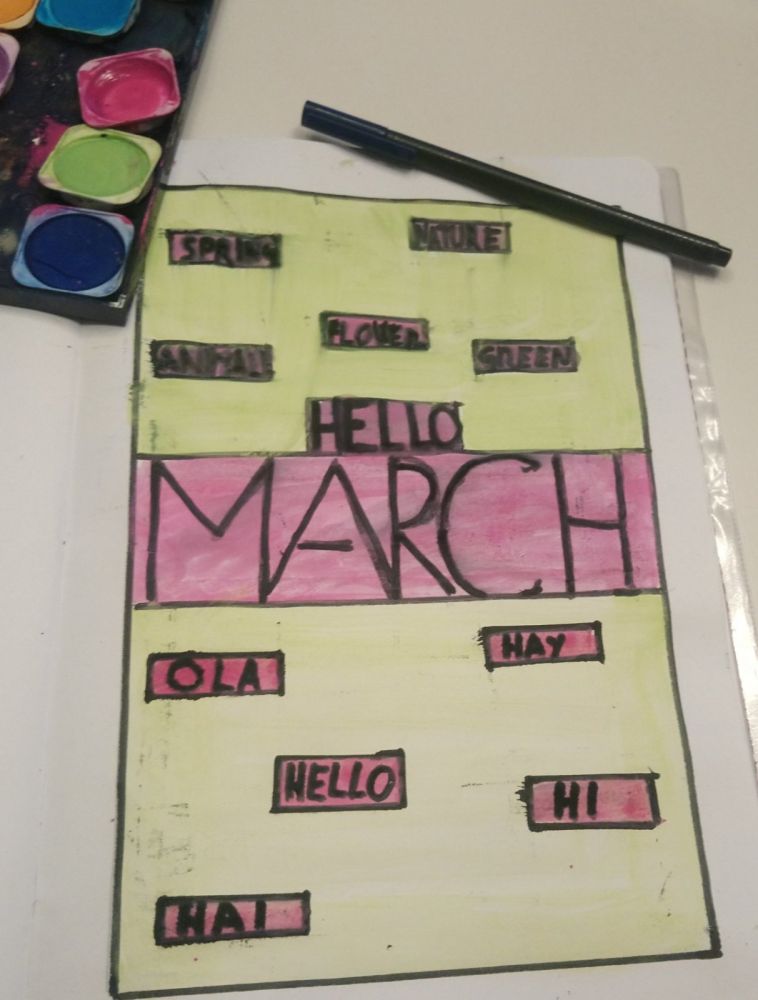 SPRING
NATURE
FLOWER
ANIMAL
GREEN
HELLO
MARCH
HAY
OLA
HELLO
HI
HAI